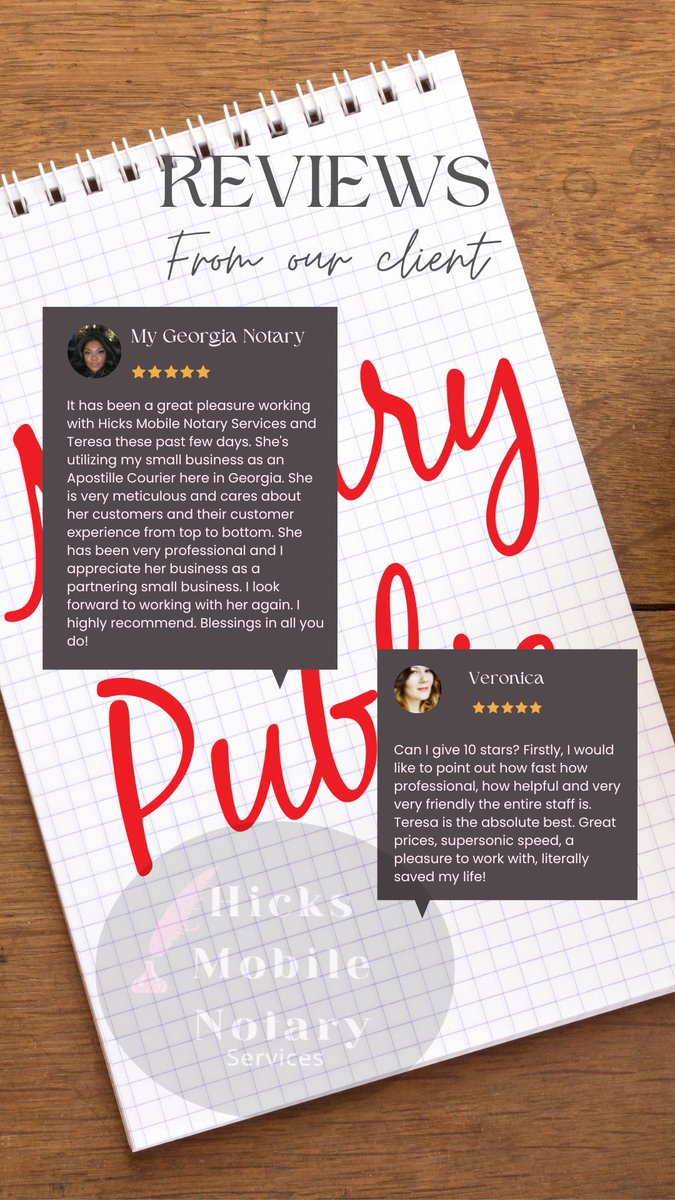 REVIEWS
From our client
My Georgia Notary
It has been a great pleasure working
with Hicks Mobile Notary Services and
Teresa these past few days. She's
utilizing my small business as an
Apostille Courier here in Georgia. She
is very meticulous and cares about
her customers and their customer
experience from top to bottom. She
has been very professional and I
appreciate her business as a
partnering small business. I look
forward to working with her again. I
highly recommend. Blessings in all you
do!
Veronica
Can I give 10 stars? Firstly, I would
like to point out how fast how
professional, how helpful and very
very friendly the entire staff is.
Teresa is the absolute best. Great
prices, supersonic speed, a
pleasure to work with, literally
saved my life!
Notary
Public
Hicks
Mobile
Notary
Services